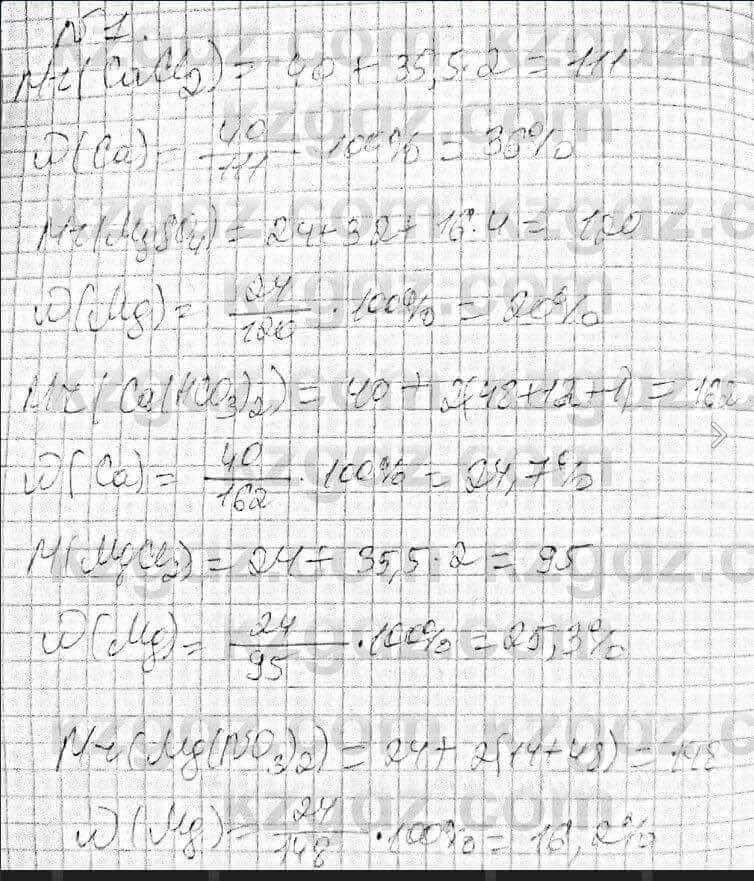 N 1.
Mr(CaCl₂) = 40 + 35,5·2 = 111
ω(Ca) = 40/111 · 100% = 36%
Mr(MgSO₄) = 24+32+16·4 = 120
ω(Mg) = 24/120 · 100% = 20%
Mr(Ca(HCO₃)₂) = 40 + 2(48+12+1) = 162
ω(Ca) = 40/162 · 100% = 24,7%
M(MgCl₂) = 24 + 35,5·2 = 95
ω(Mg) = 24/95 · 100% = 25,3%
Mr(Mg(NO₃)₂) = 24 + 2(14+48) = 148
ω(Mg) = 24/148 · 100% = 16,2%
kzgdz.com